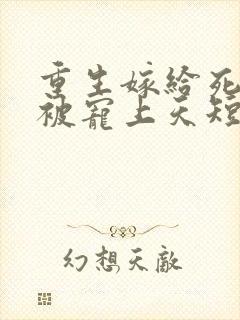 重生嫁给死
被宠上天短
幻想天敵